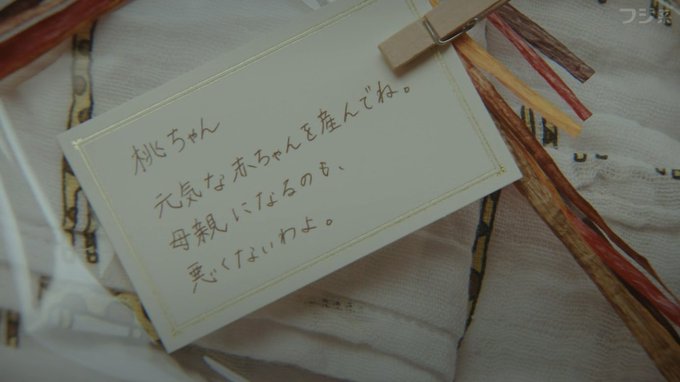 桃ちゃん
元気な赤ちゃんを産んでね。
母親になるのも、
悪くないわよ。